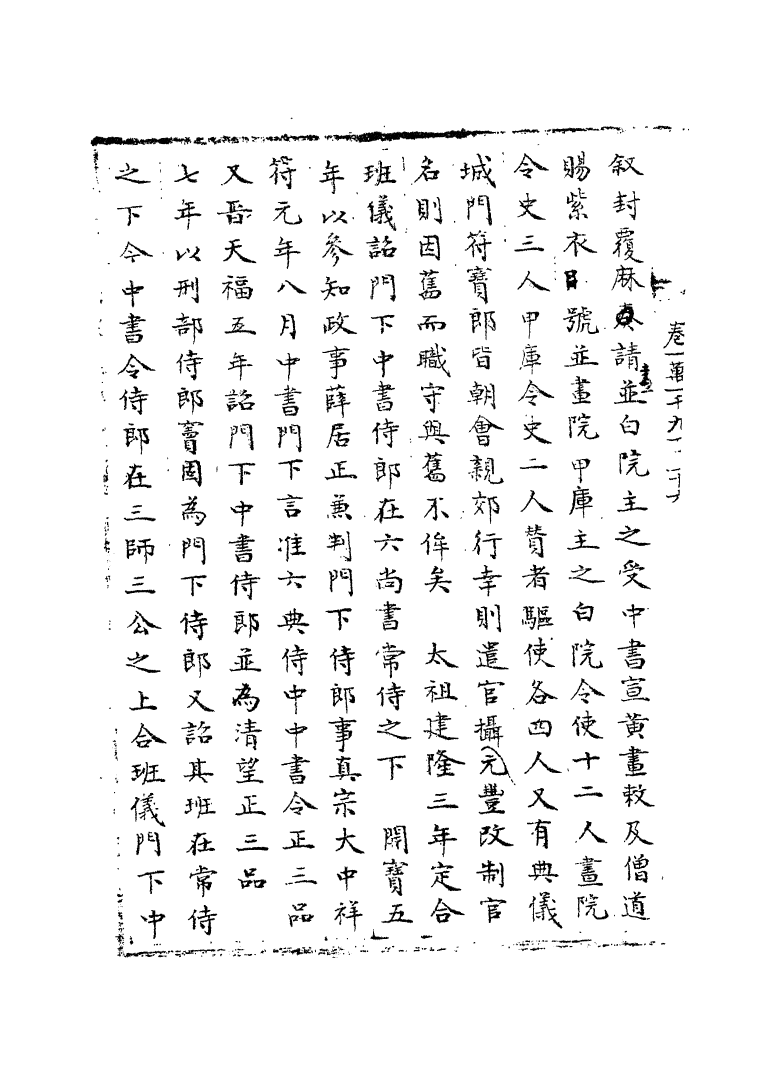 卷一萬一千九
叙封覆麻奏請並白院主之受中書宣黄畫敕及僧道
畫
賜紫衣師號並畫院甲庫主之白院令使十二人畫院
令史三人甲庫令史二人贊者驅使各四人又有典儀
城門符寶郎皆朝會親郊行幸則遣官攝元豐改制官
名則因舊而職守與舊不侔矣　太祖建隆三年定合
班儀詔門下中書侍郎在六尚書常侍之下　開寶五
年以參知政事薛居正兼判門下侍郎事真宗大中祥
符元年八月中書門下言准六典侍中中書令正三品
又晋天福五年詔門下中書侍郎並為清望正三品
七年以刑部侍郎竇固為門下侍郎又詔其班在常侍
之下今中書令侍郎在三師三公之上合班儀門下中